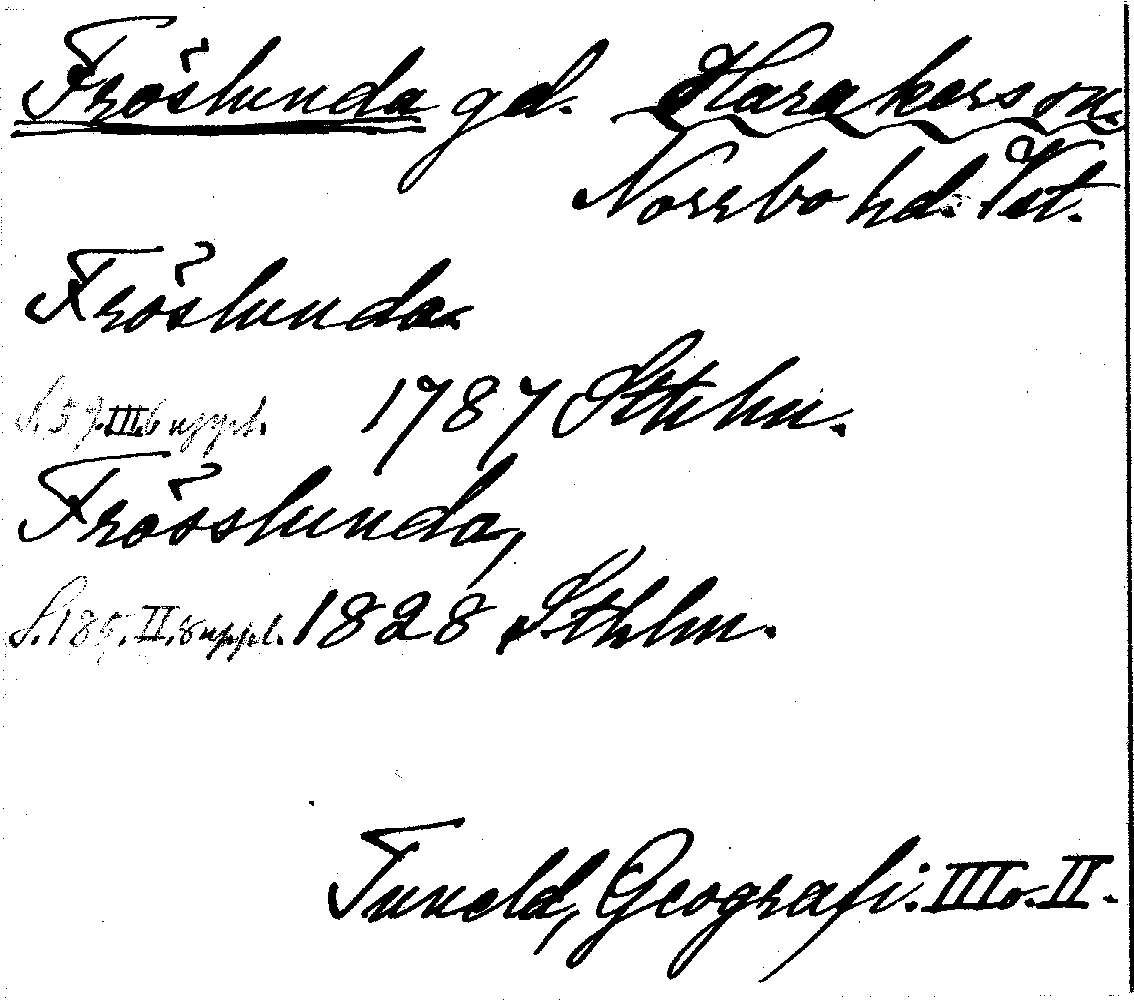 Fröslunda gd. Harakers sn.
Norrbo hd. Vst.
Fröslunda
S. 57. III. 6 uppl. 1787 Sthlm.
Frösslunda,
S. 185. II. 8 uppl. 1828 Sthlm.
Tuneld, Geografi. III o. II.